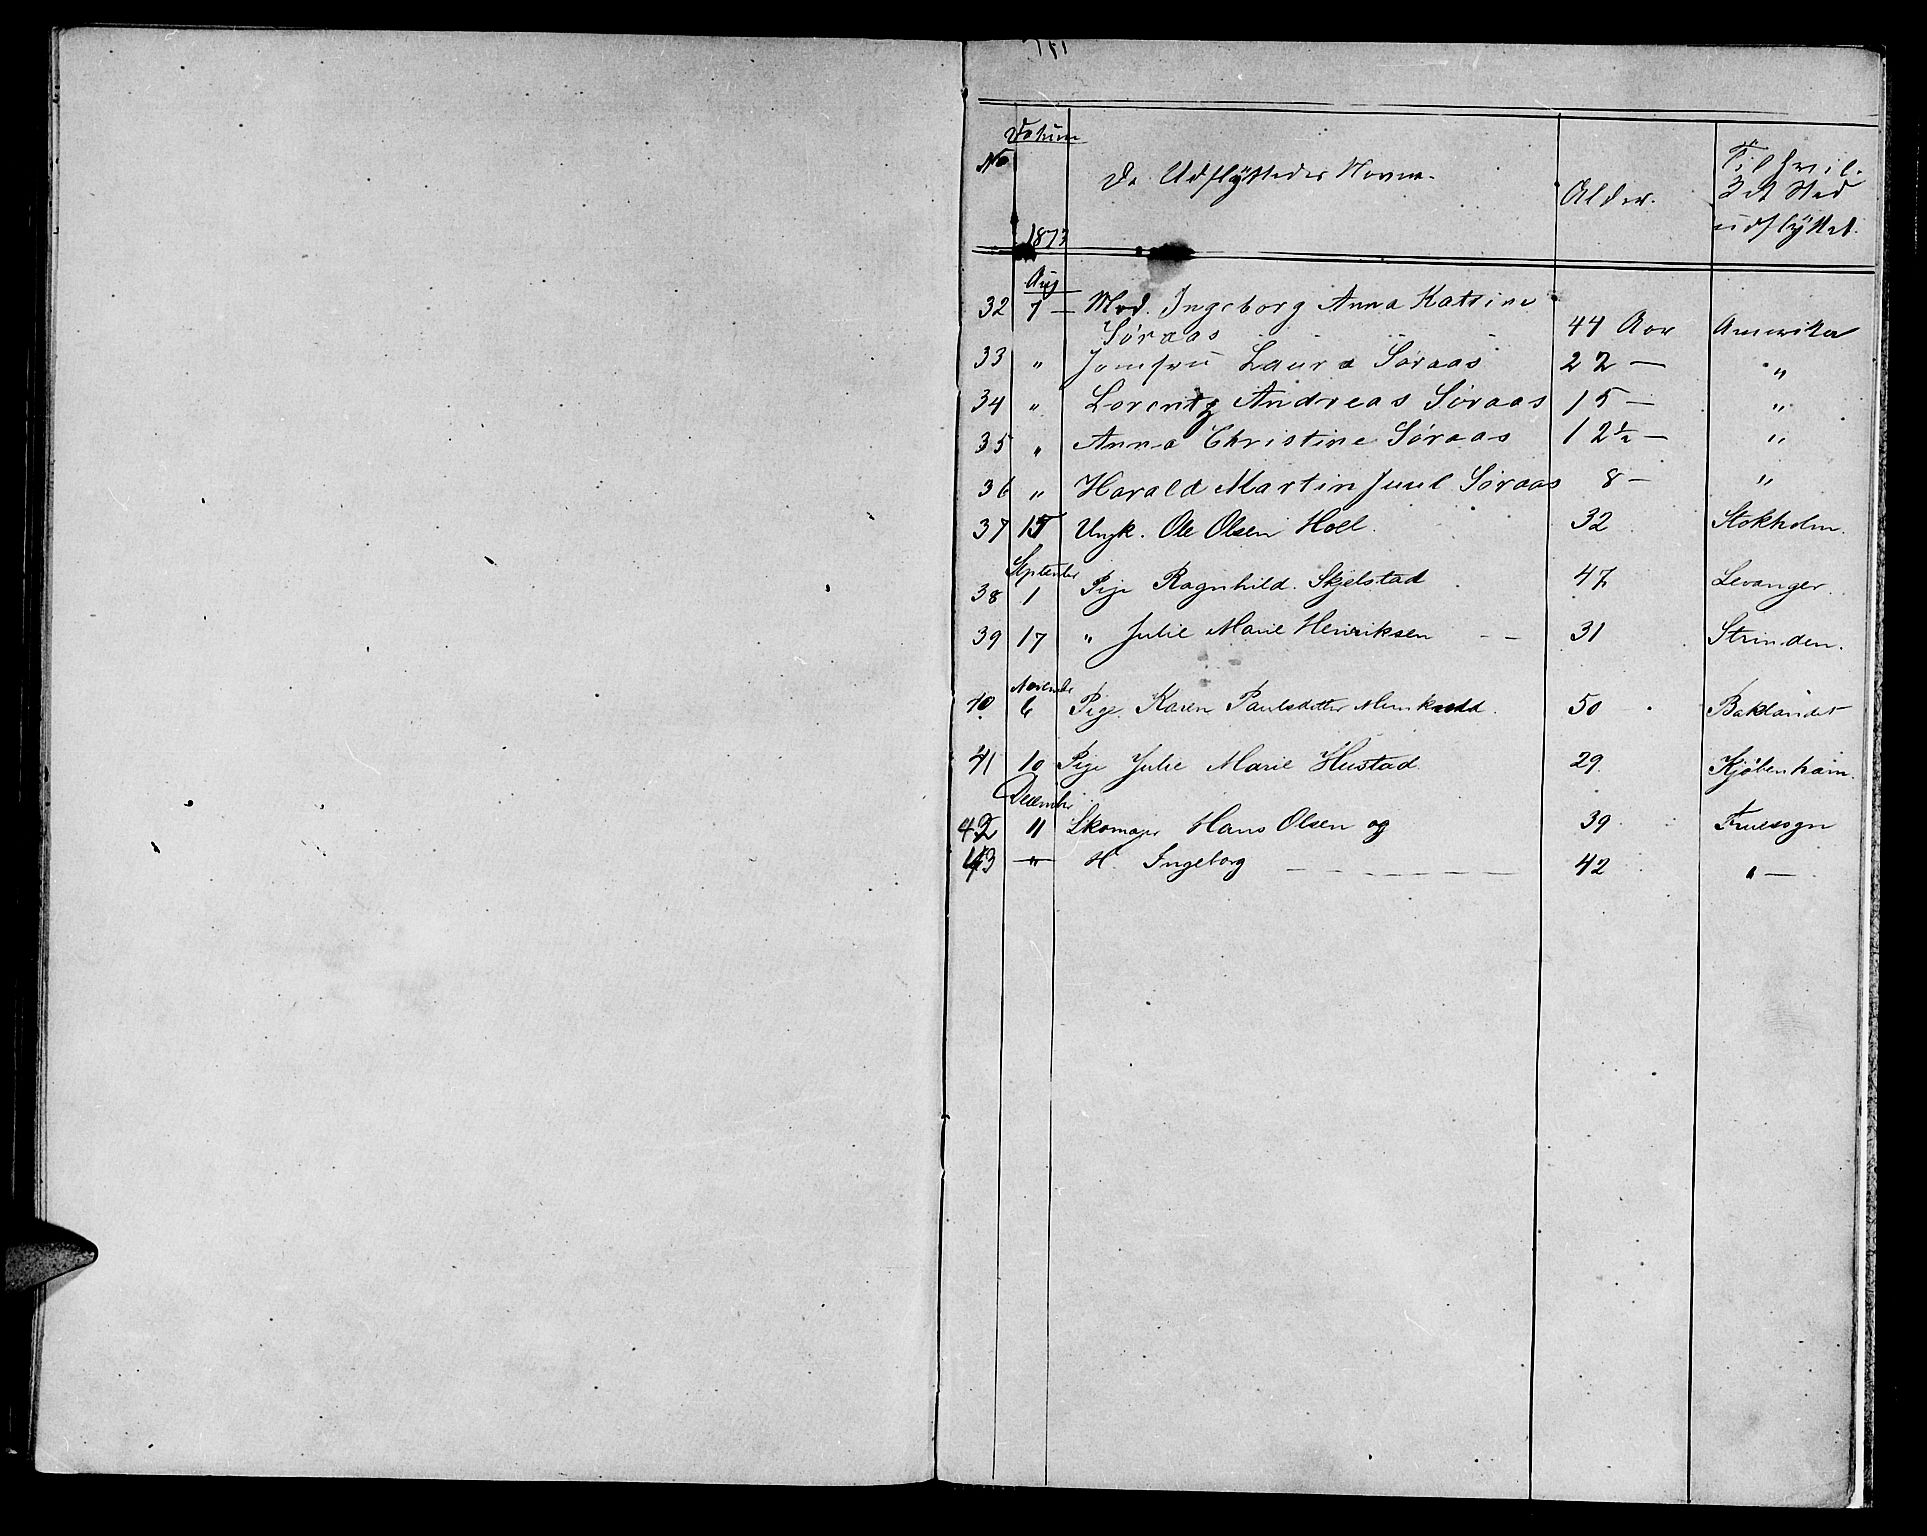 No Datum De Udflyttedes Navne. Alder. Til hvil-
ket Sted
udflyttet.
1873
Aug
32 7 - Mad. Ingeborg Anna Katrine
Søraas 44 Aar Amerika
33 " Jomfru Laura Søraas 22 - "
34 " Lorentz Andreas Søraas 15 - "
35 " Anna Christine Søraas 12½ - "
36 " Harald Martin Juul Søraas 8 - "
37 15 Ungk. Ole Olsen Holl. 32 Stokholm.
September
38 1 Pige Ragnhild Skjelstad 47 Levanger.
39 17 " Julie Marie Henriksen - - 31 Strinden.
Novembr
40 6 Pige. Karen Paulsdatter 50 Baklandet
41 10 Pige Julie Marie Hustad. 29. Kjøbenhavn.
Decembr
42 11 Skomager Hans Olsen og 39 Fruesogn
43 " H. Ingeborg - - - - - - 42 " -